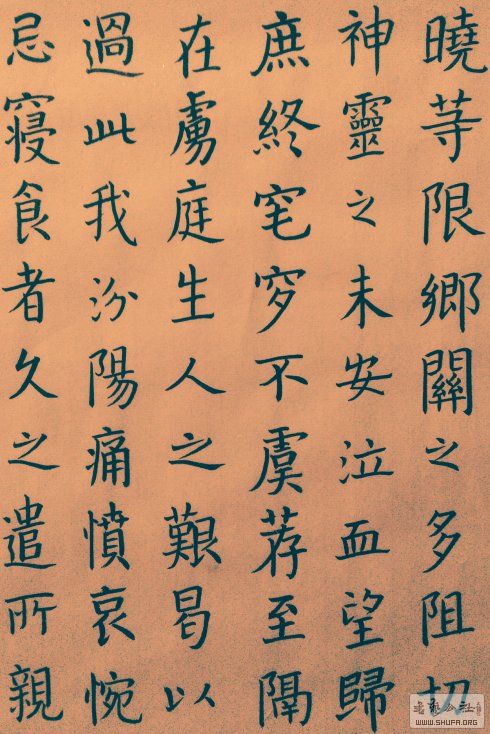 曉荨限鄉關之多阻切
神靈之未安泣血望歸
庶終窀穸不虞荐至隔
在虜庭生人之艱曷以
過此我汾陽痛憤哀惋
忌寢食者久之遣所親
WWW.SHUFA.ORG